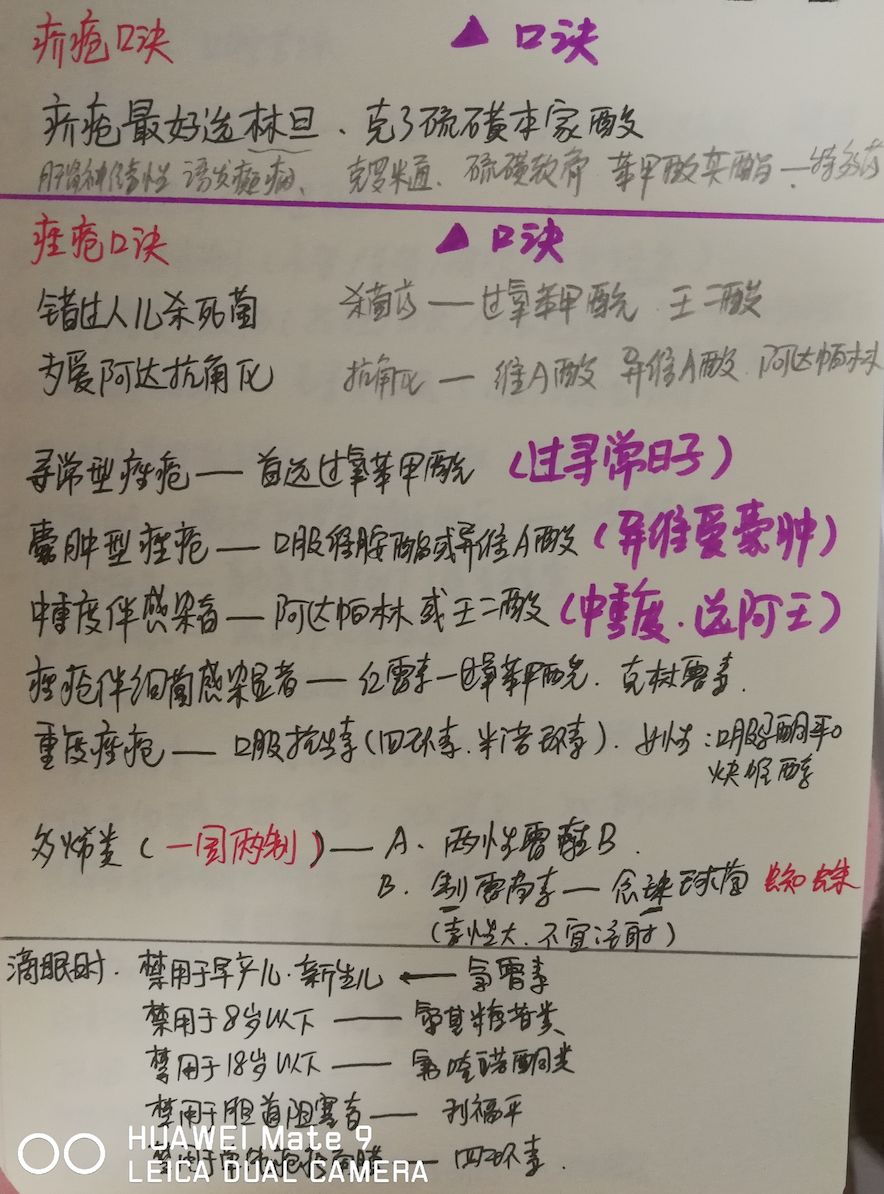 疥疮口诀 ▲ 口诀
疥疮最好选林旦、克了硫磺本家酸
肝肾神经毒性 诱发癫痫、克罗米通、硫磺软膏 苯甲酸苄酯—特效药
痤疮口诀 ▲ 口诀
错过人儿杀死菌 杀菌药——过氧苯甲酰 壬二酸
为爱阿达抗角化 抗角化—维A酸 异维A酸.阿达帕林
寻常型痤疮——首选过氧苯甲酰 (过寻常日子)
囊肿型痤疮——口服维胺酯或异维A酸 (异维爱囊肿)
中重度伴感染者——阿达帕林或壬二酸 (中重度.选阿壬)
痤疮伴细菌感染显者——红霉素—过氧苯甲酰.克林霉素.
重度痤疮——口服抗生素(四环素.米诺环素).女性:口服孕酮平
炔雌醇
多烯类(一国两制)——A.两性霉素B.
B.制霉菌素——念珠球菌 蜘蛛
(毒性大.不宜注射)
滴眼时.禁用于早产儿.新生儿 ← 氯霉素
禁用于8岁以下——氨基糖苷类
禁用于18岁以下——氟喹诺酮类
禁用于胆道阻塞者——利福平
——四环素.
HUAWEI Mate 9
LEICA DUAL CAMERA